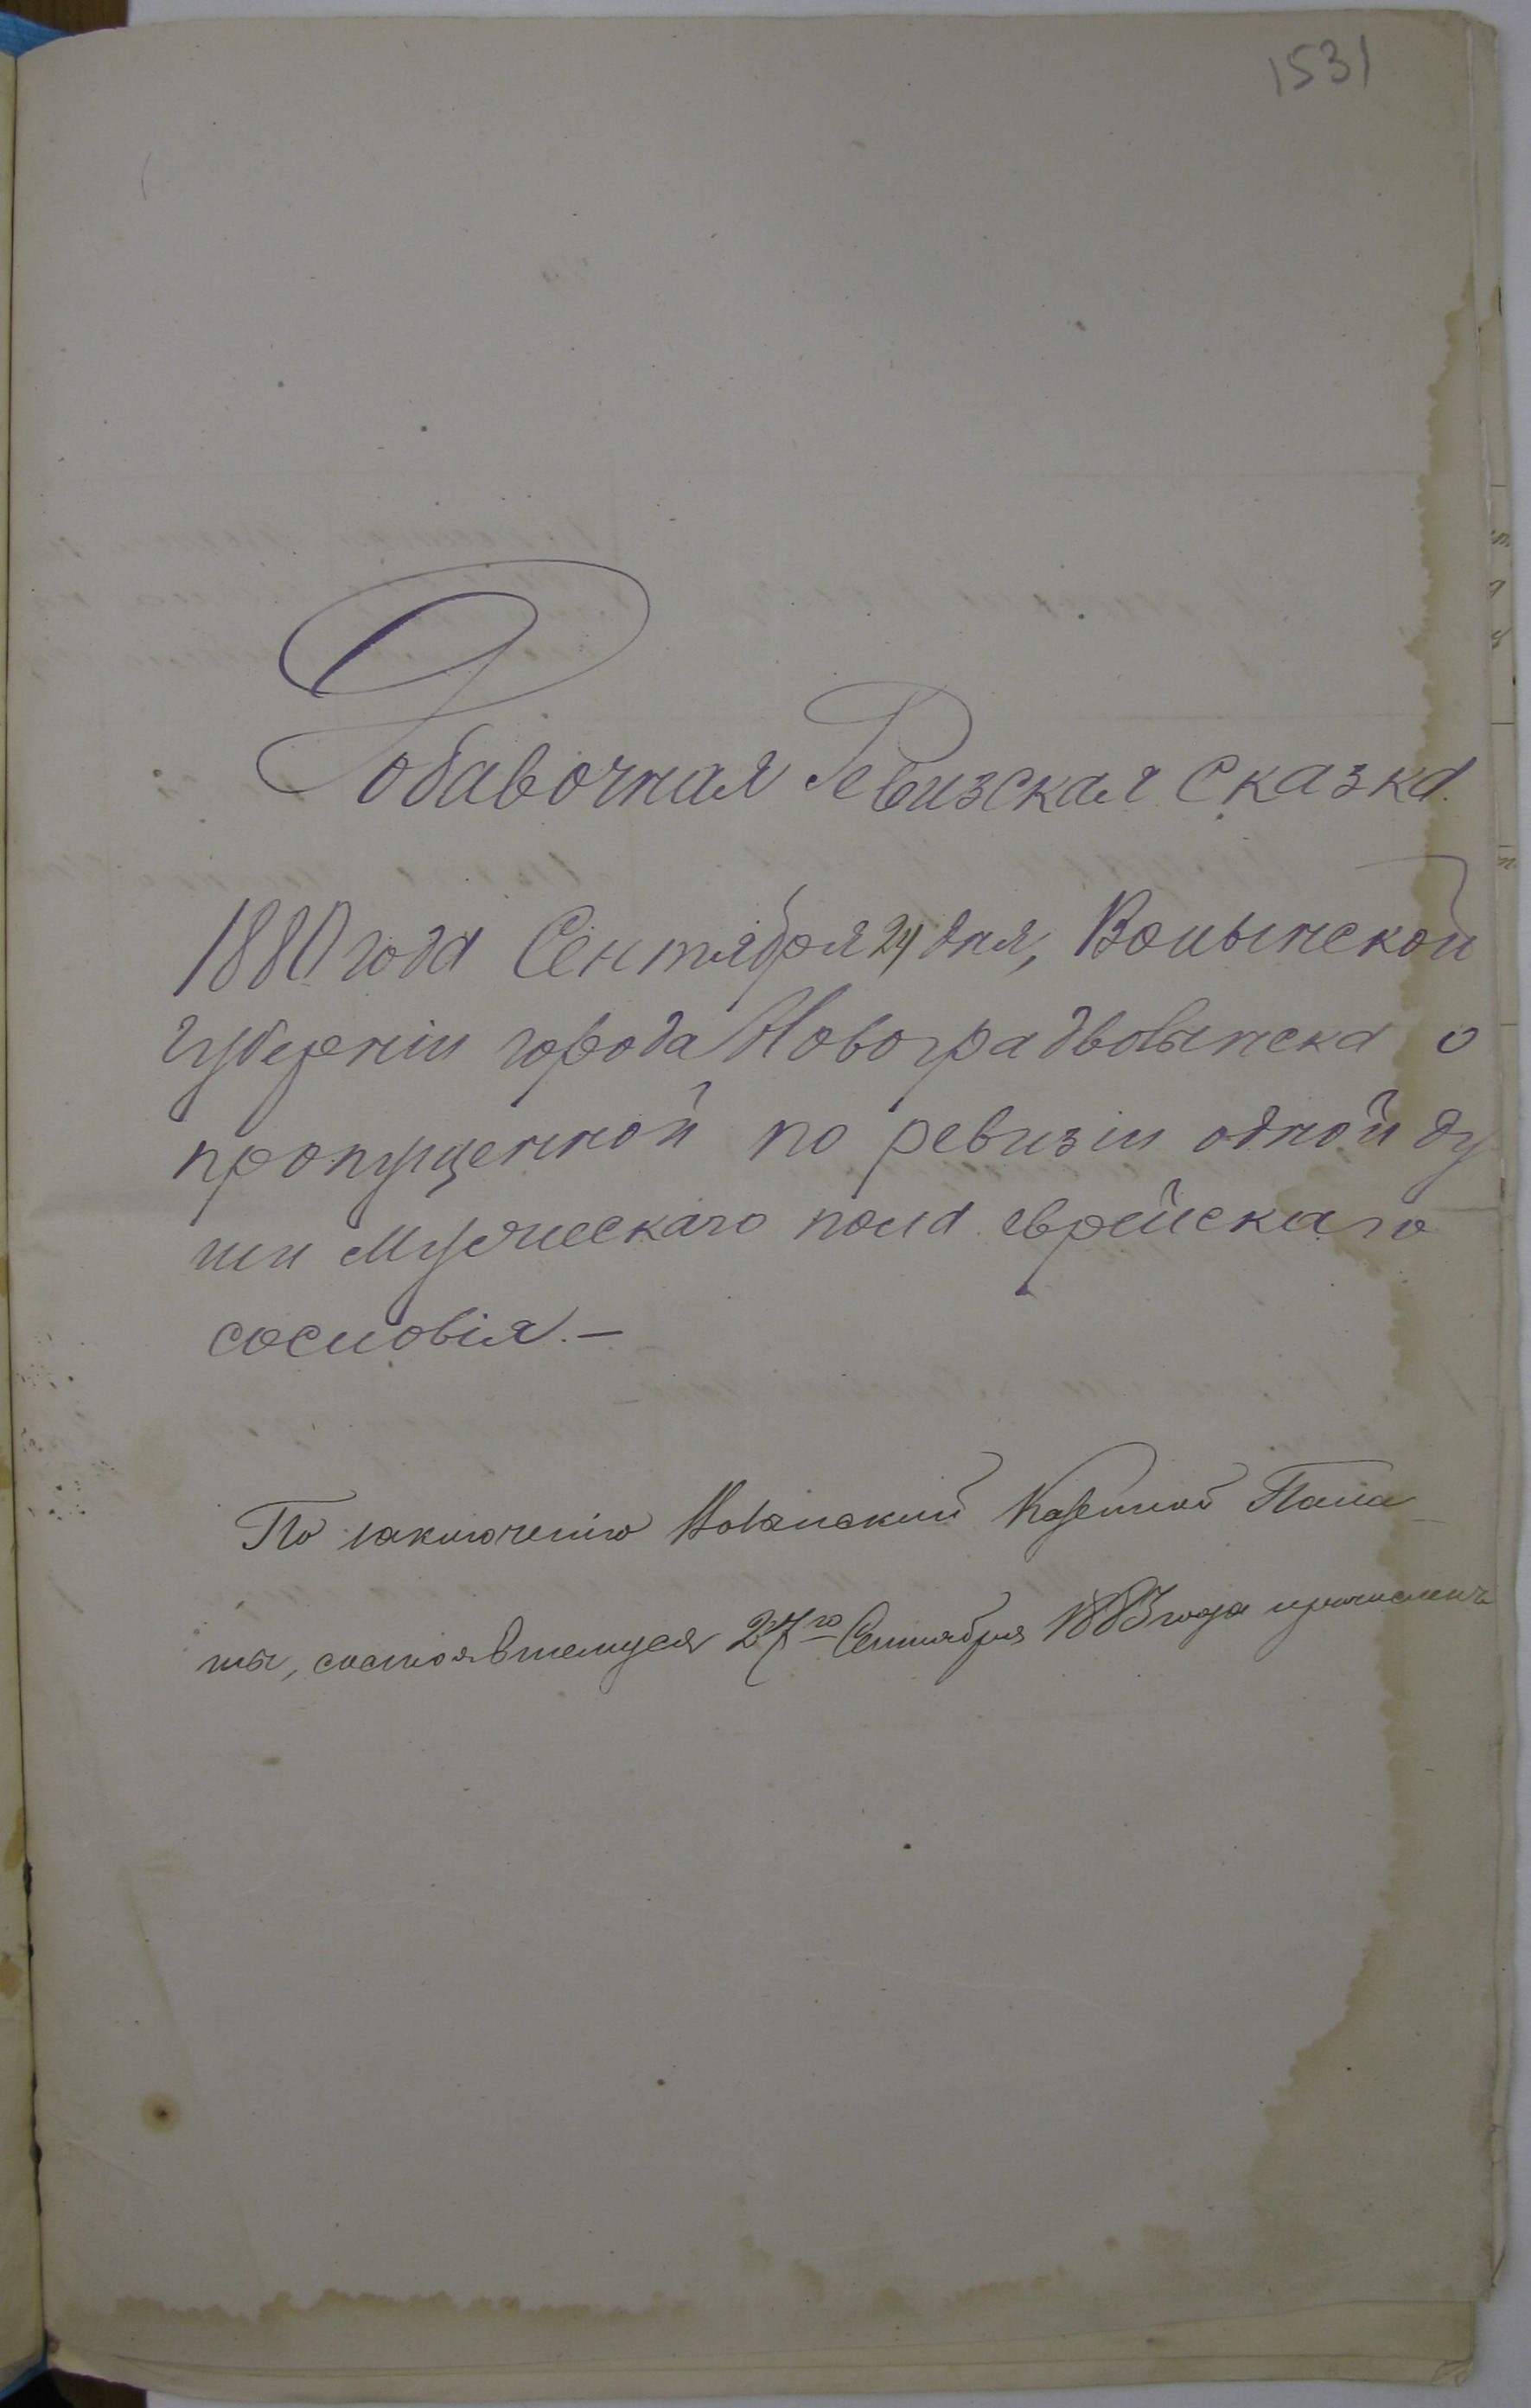 1531
Добавочная Ревизская Сказка
1880 года Сентября 24 дня, Волынской
губерніи города Новоградволынска о
пропущенной по ревизіи одной ду
ши Мужескаго пола еврейскаго
сословія. —
По заключенію Волынский Казенной Пала
ты, состоявшемуся 27го Сентября 1883 года причислен